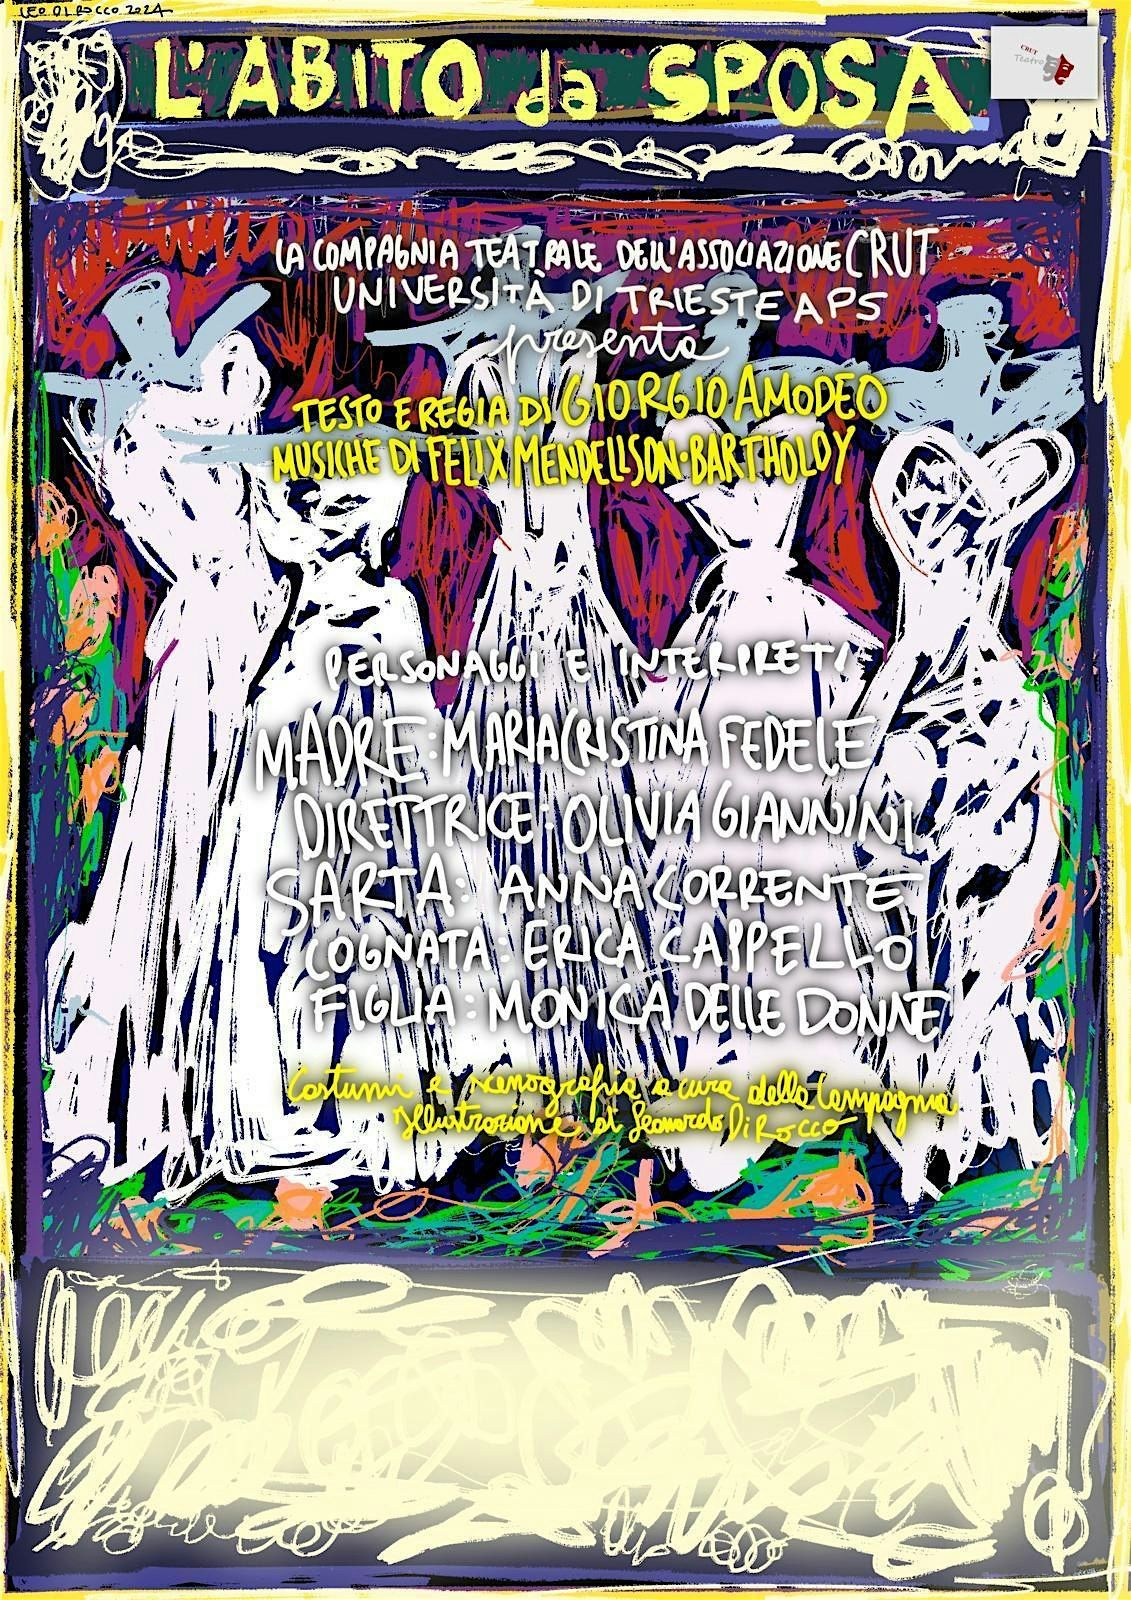 LEO DI ROCCO 2024
L'ABITO da SPOSA
CRUT
Teatro
LA COMPAGNIA TEATRALE DELL'ASSOCIAZIONE CRUT
UNIVERSITÀ DI TRIESTE APS
presenta
TESTO E REGIA DI GIORGIO AMODEO
MUSICHE DI FELIX MENDELLSON-BARTHOLDY
PERSONAGGI E INTERPRETI
MADRE: MARIACRISTINA FEDELE
DIRETTRICE: OLIVIA GIANNINI
SARTA: ANNA CORRENTE
COGNATA: ERICA CAPPELLO
FIGLIA: MONICA DELLE DONNE
Costumi e scenografia a cura della Compagnia
Illustrazione di Leonardo Di Rocco